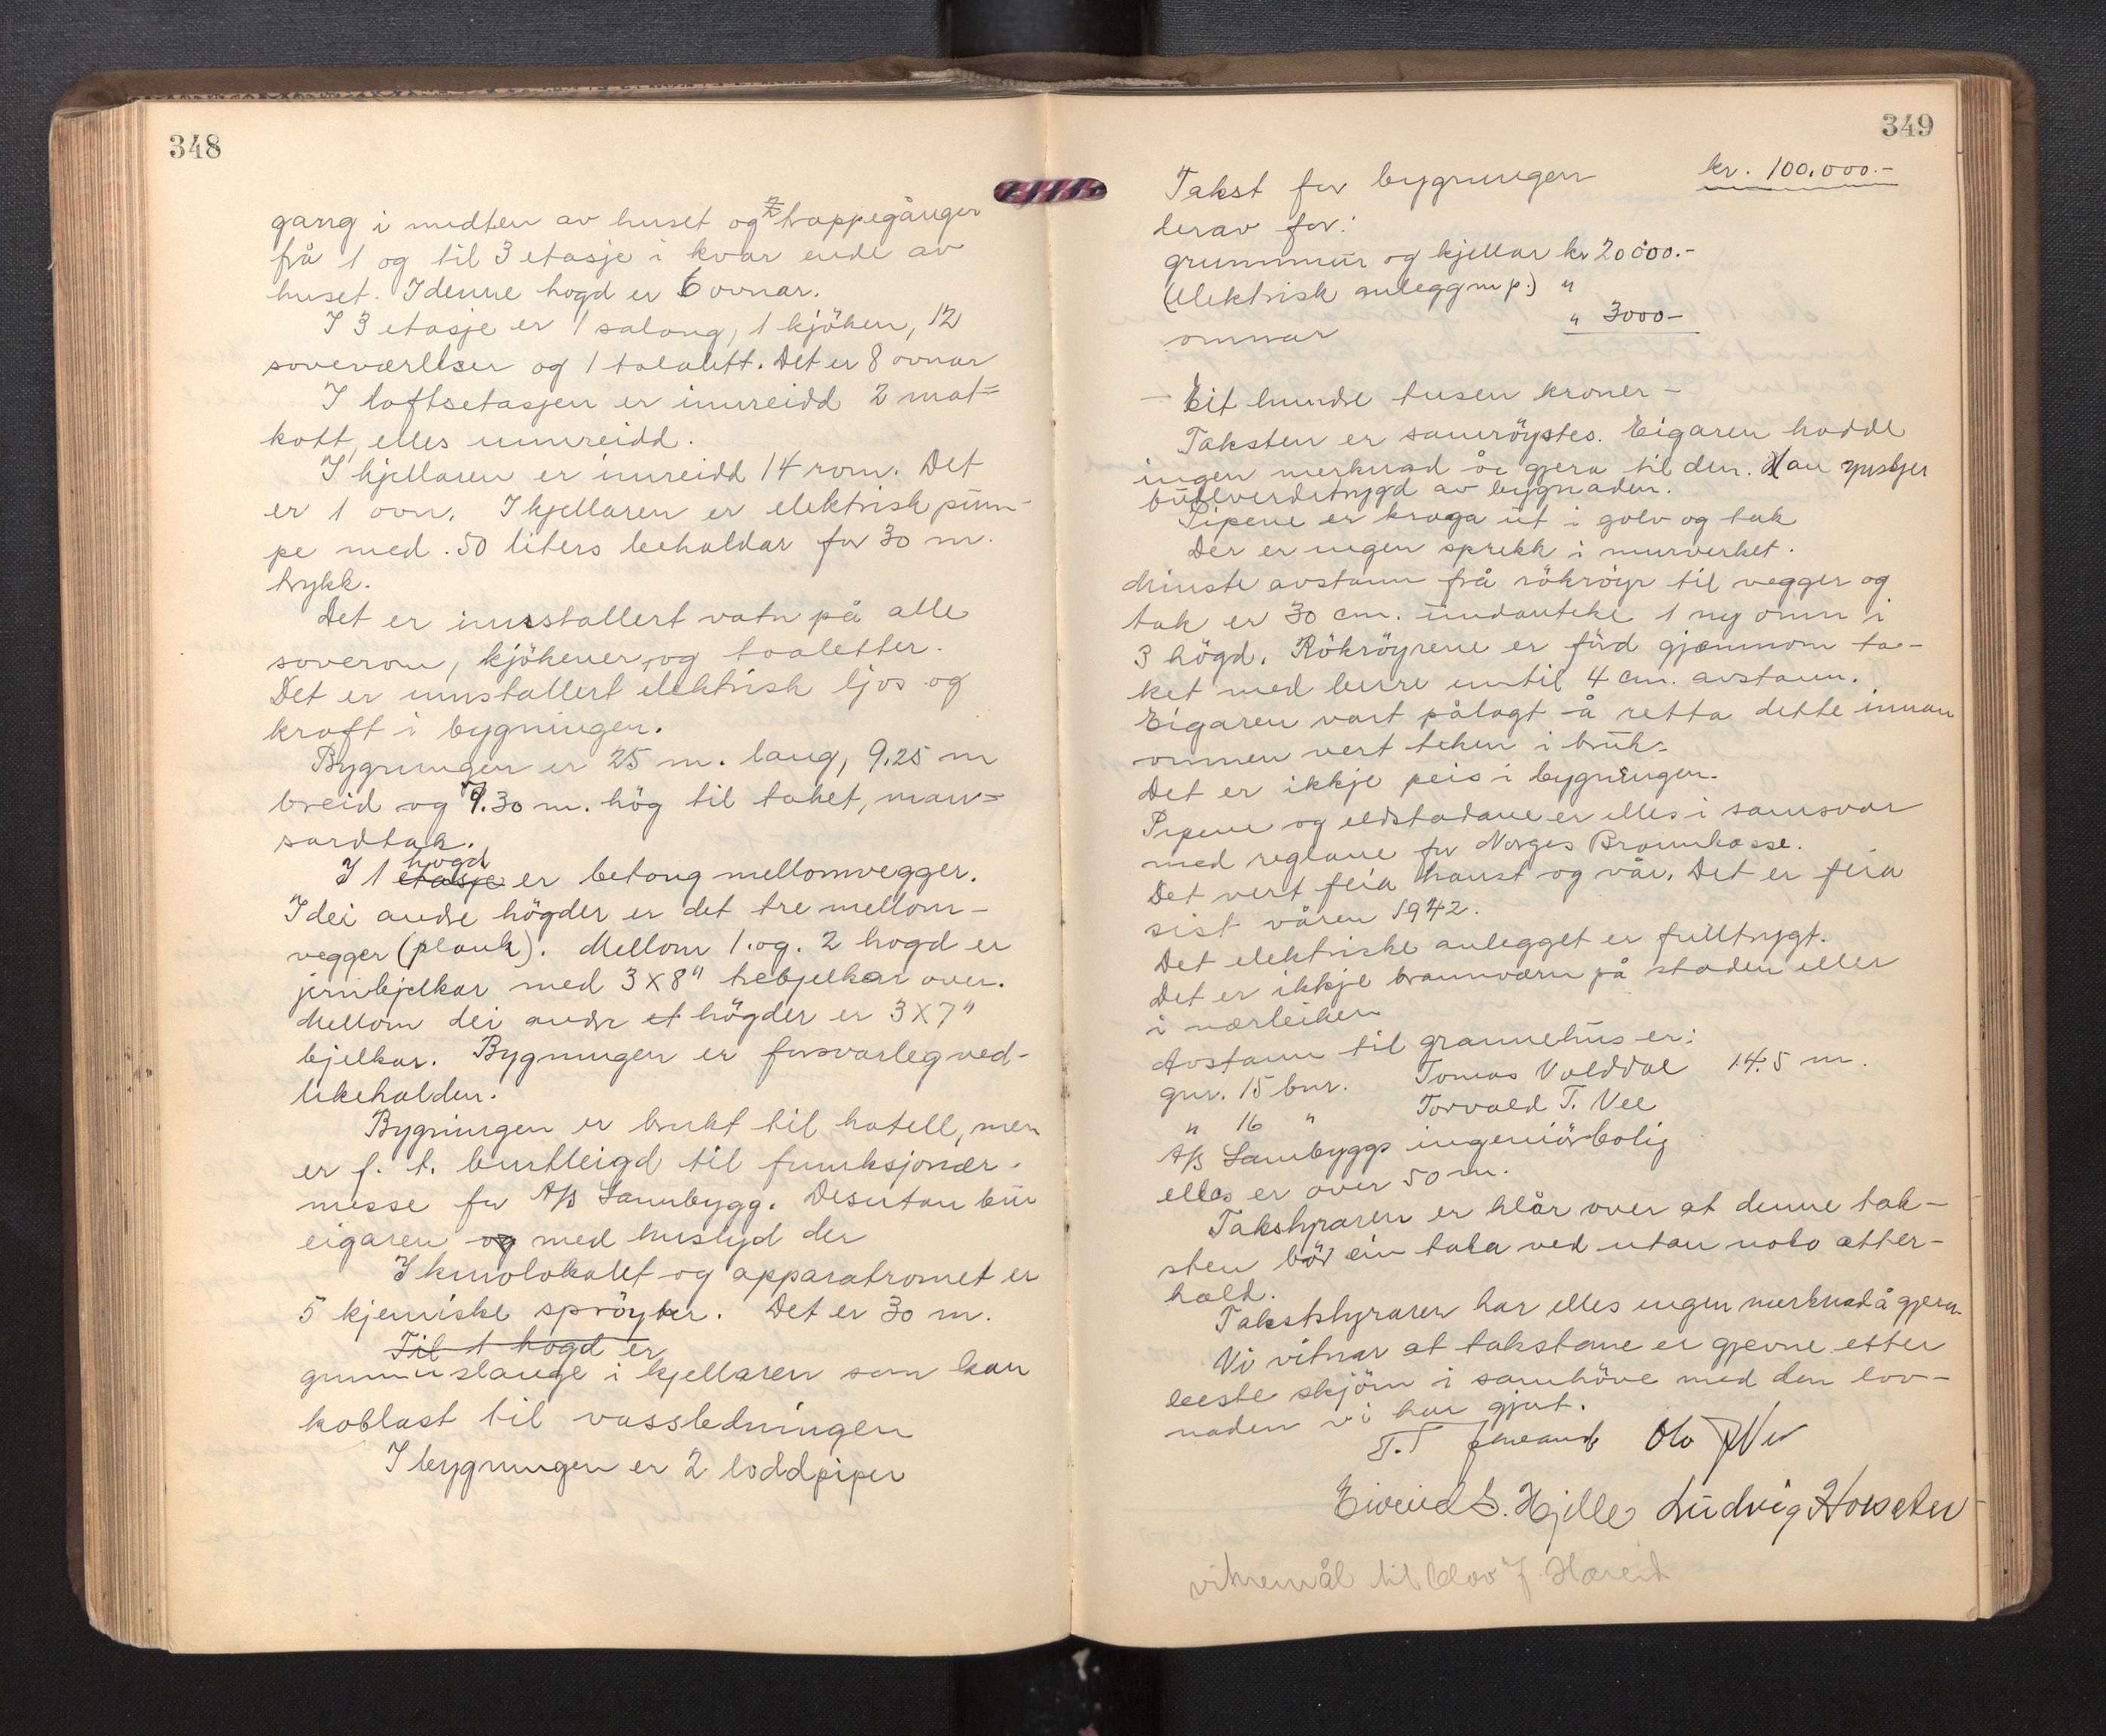 348
gang i midten av huset og 2 trappegånger
frå 1 og til 3 etasje i kvar ende av
huset. I denne hogd er 6 ovnar.
I 3 etasje er 1 salong, 1 kjöken, 12
soveværelser og 1 toalett. Det er 8 ovnar
I loftsetasjen er innreidd 2 mat=
kott, elles uinnreidd.
I kjellaren er innreidd 14 rom. Det
er 1 ovn. I kjellaren er elektrisk pum-
pe med 50 liters behaldar for 30 m.
trykk.
Det er innstallert vatn på alle
soverom, kjökener, og toaletter.
Det er innstallert elektrisk ljos og
kraft i bygningen.
Bygningen er 25 m. lang, 9,25 m
breid og 9.30 m. hög til taket, man=
sardtak.
I 1 etasje hogd er betong mellomvegger.
I dei andre högder er det tre mellom-
vegger (plank). Mellom 1. og. 2 hogd er
jernbjelkar med 3x8" trebjelkar over.
Mellom dei andre et högder er 3x7"
bjelkar. Bygningen er forsvarleg ved-
likehalden.
Bygningen er brukt til hotell, men
er f. t. burtleigd til funksjonær-
messe for A/S Lannbygg. Desutan bur
eigaren og med huslyd der
I kinolokalet og apparatromet er
5 kjemiske spröyter. Det er 30 m.
Til 1 hogd er
gummislange i kjellaren som kan
koblast til vassledningen
I bygningen er 2 loddpiper
349
Takst for bygningen kr. 100.000.-
derav for:
grunnmur og kjellar kr 20000.-
(elektrisk anlegg m p.) "
omnar " 3000-
- Eit hundre tusen kroner -
Taksten er samröystes. Eigaren hadde
ingen merknad å gjera til den. Han ynskjer
fullverditrygd av bygnaden.
Pipene er kraga ut i golv og tak
Der er ingen sprekk i murverket.
Minste avstann frå rökröyr til vegger og
tak er 30 cm. undanteke 1 ny omn i
3 högd. Rökröyrene er förd gjennom ta-
ket med berre inntil 4 cm. avstann.
Eigaren vart pålagt å retta dette innan
omnen vert teken i bruk.
Det er ikkje peis i bygningen.
Pipene og eldstadane er elles i samsvar
med reglane for Norges Brannkasse.
Det vert feia haust og vår. Det er feia
sist våren 1942.
Det elektriske anlegget er fulltrygt.
Det er ikkje brannværn på staden eller
i nærleiken
Avstann til grannehus er:
gnr. 15 bnr. Tomas Valddal 14.5 m.
" 16 " Torvald T. Vee
A/S Lannbyggs ingeniörbolig
elles er over 50 m.
Takstyraren er klår over at denne tak-
sten bör ein taka ved utan noko atter-
hald.
Takststyraren har elles ingen merknad å gjera
Vi vitnar at takstane er gjevne etter
beste skjön i samhöve med den lov-
naden vi har gjort.
Eivind S. Hjelle Ludvig
vitnemål til Olav J. Hareid